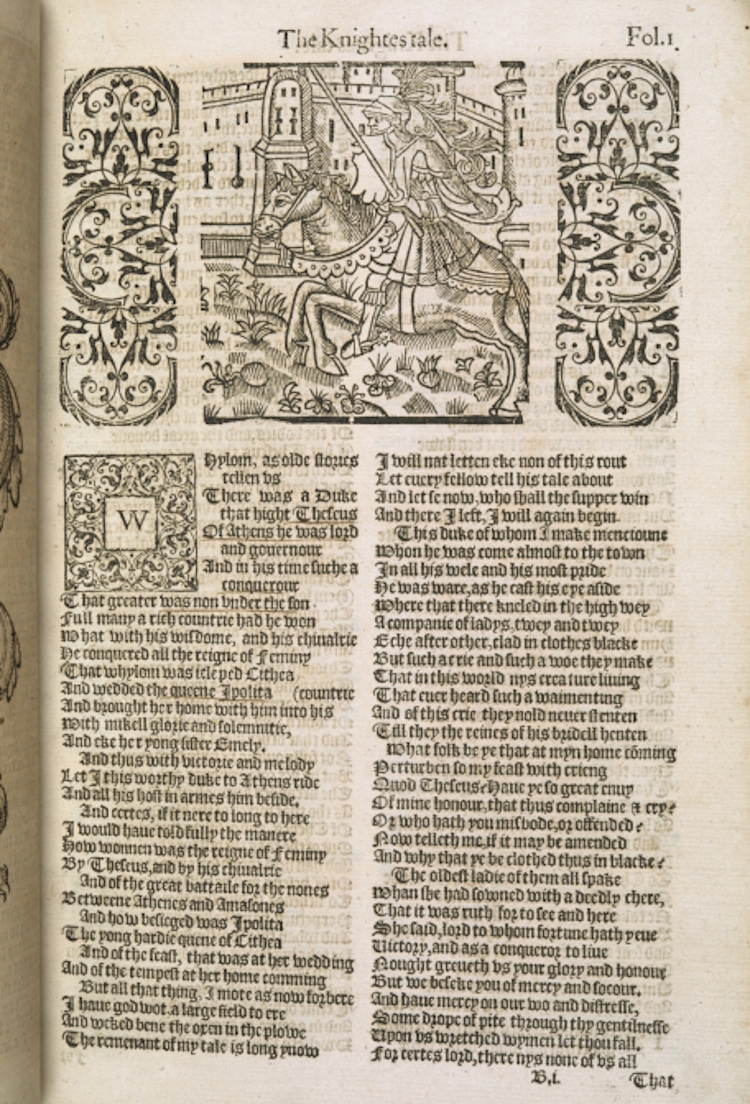 The Knightes tale.
Fol.1.
Whylom, as olde stories
tellen vs
There was a Duke
that hight Theseus
Of Athens he was lord
and gouernour
And in his time suche a
conquerour
That greater was non vnder the son
Full many a rich countrie had he won
What with his wisdome, and his chiualrie
He conquered all the reigne of Feminy
That whylom was icleped Cithea
And wedded the queene Ipolita (countrie
And brought her home with him into his
With mikell glorie and solemnitie,
And eke her yong sister Emely.
And thus with victorie and melody
Let I this worthy duke to Athens ride
And all his host in armes him beside.
And certes, if it nere to long to here
I would haue told fully the manere
How wonnen was the reigne of Feminy
By Theseus, and by his chiualrie
And of the great battaile for the nones
Betweene Athenes and Amasones
And how besieged was Ipolita
The yong hardie quene of Cithea
And of the feast, that was at her wedding
And of the tempest at her home comming
But all that thing, I mote as now forbere
I haue god wot, a large field to ere
And weked bene the oxen in the plowe
The remenant of my tale is long ynow
I will nat letten eke non of this rout
Let euery fellow tell his tale about
And let se now, who shall the supper win
And there I left, I will again begin.
This duke of whom I make mencioune
Whon he was come almost to the town
In all his wele and his most pride
He was ware, as he cast his eye aside
Where that there kneled in the high wey
A companie of ladys, twey and twey
Eche after other, clad in clothes blacke
But such a crie and such a woe they make
That in this world nys creature liuing
That euer heard such a waimenting
And of this crie they nold neuer stenten
Till they the reines of his bridell henten
What folk be ye that at myn home cõming
Perturben so my feast with crieng
Quod Theseus? Haue ye so great enuy
Of mine honour, that thus complaine & cry?
Or who hath you misbode, or offended?
Now telleth me, if it may be amended
And why that ye be clothed thus in blacke?
The oldest ladie of them all spake
Whan she had sowned with a deedly chere,
That it was ruth for to see and here
She said, lord to whom fortune hath yeue
Victory, and as a conqueror to liue
Nought greueth vs your glory and honour
But we beseke you of mercy and socour.
And haue mercy on our wo and distresse,
Some drope of pite through thy gentilnesse
Upon vs wretched wymen let thou fall.
For certes lord, there nys none of vs all
B.i.
That